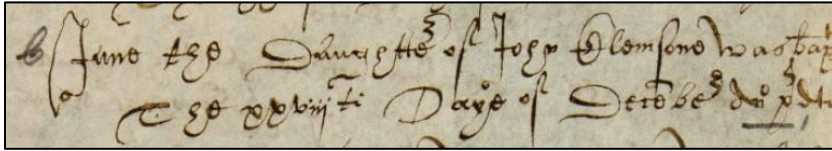 b Jane the Daughter of John Klemsone was bap
The xxviijti Daye of December